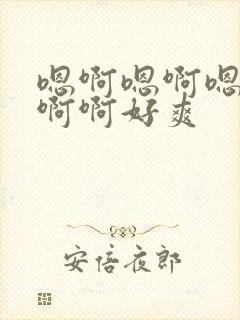 嗯啊嗯啊嗯
啊啊好爽
安倍夜郎